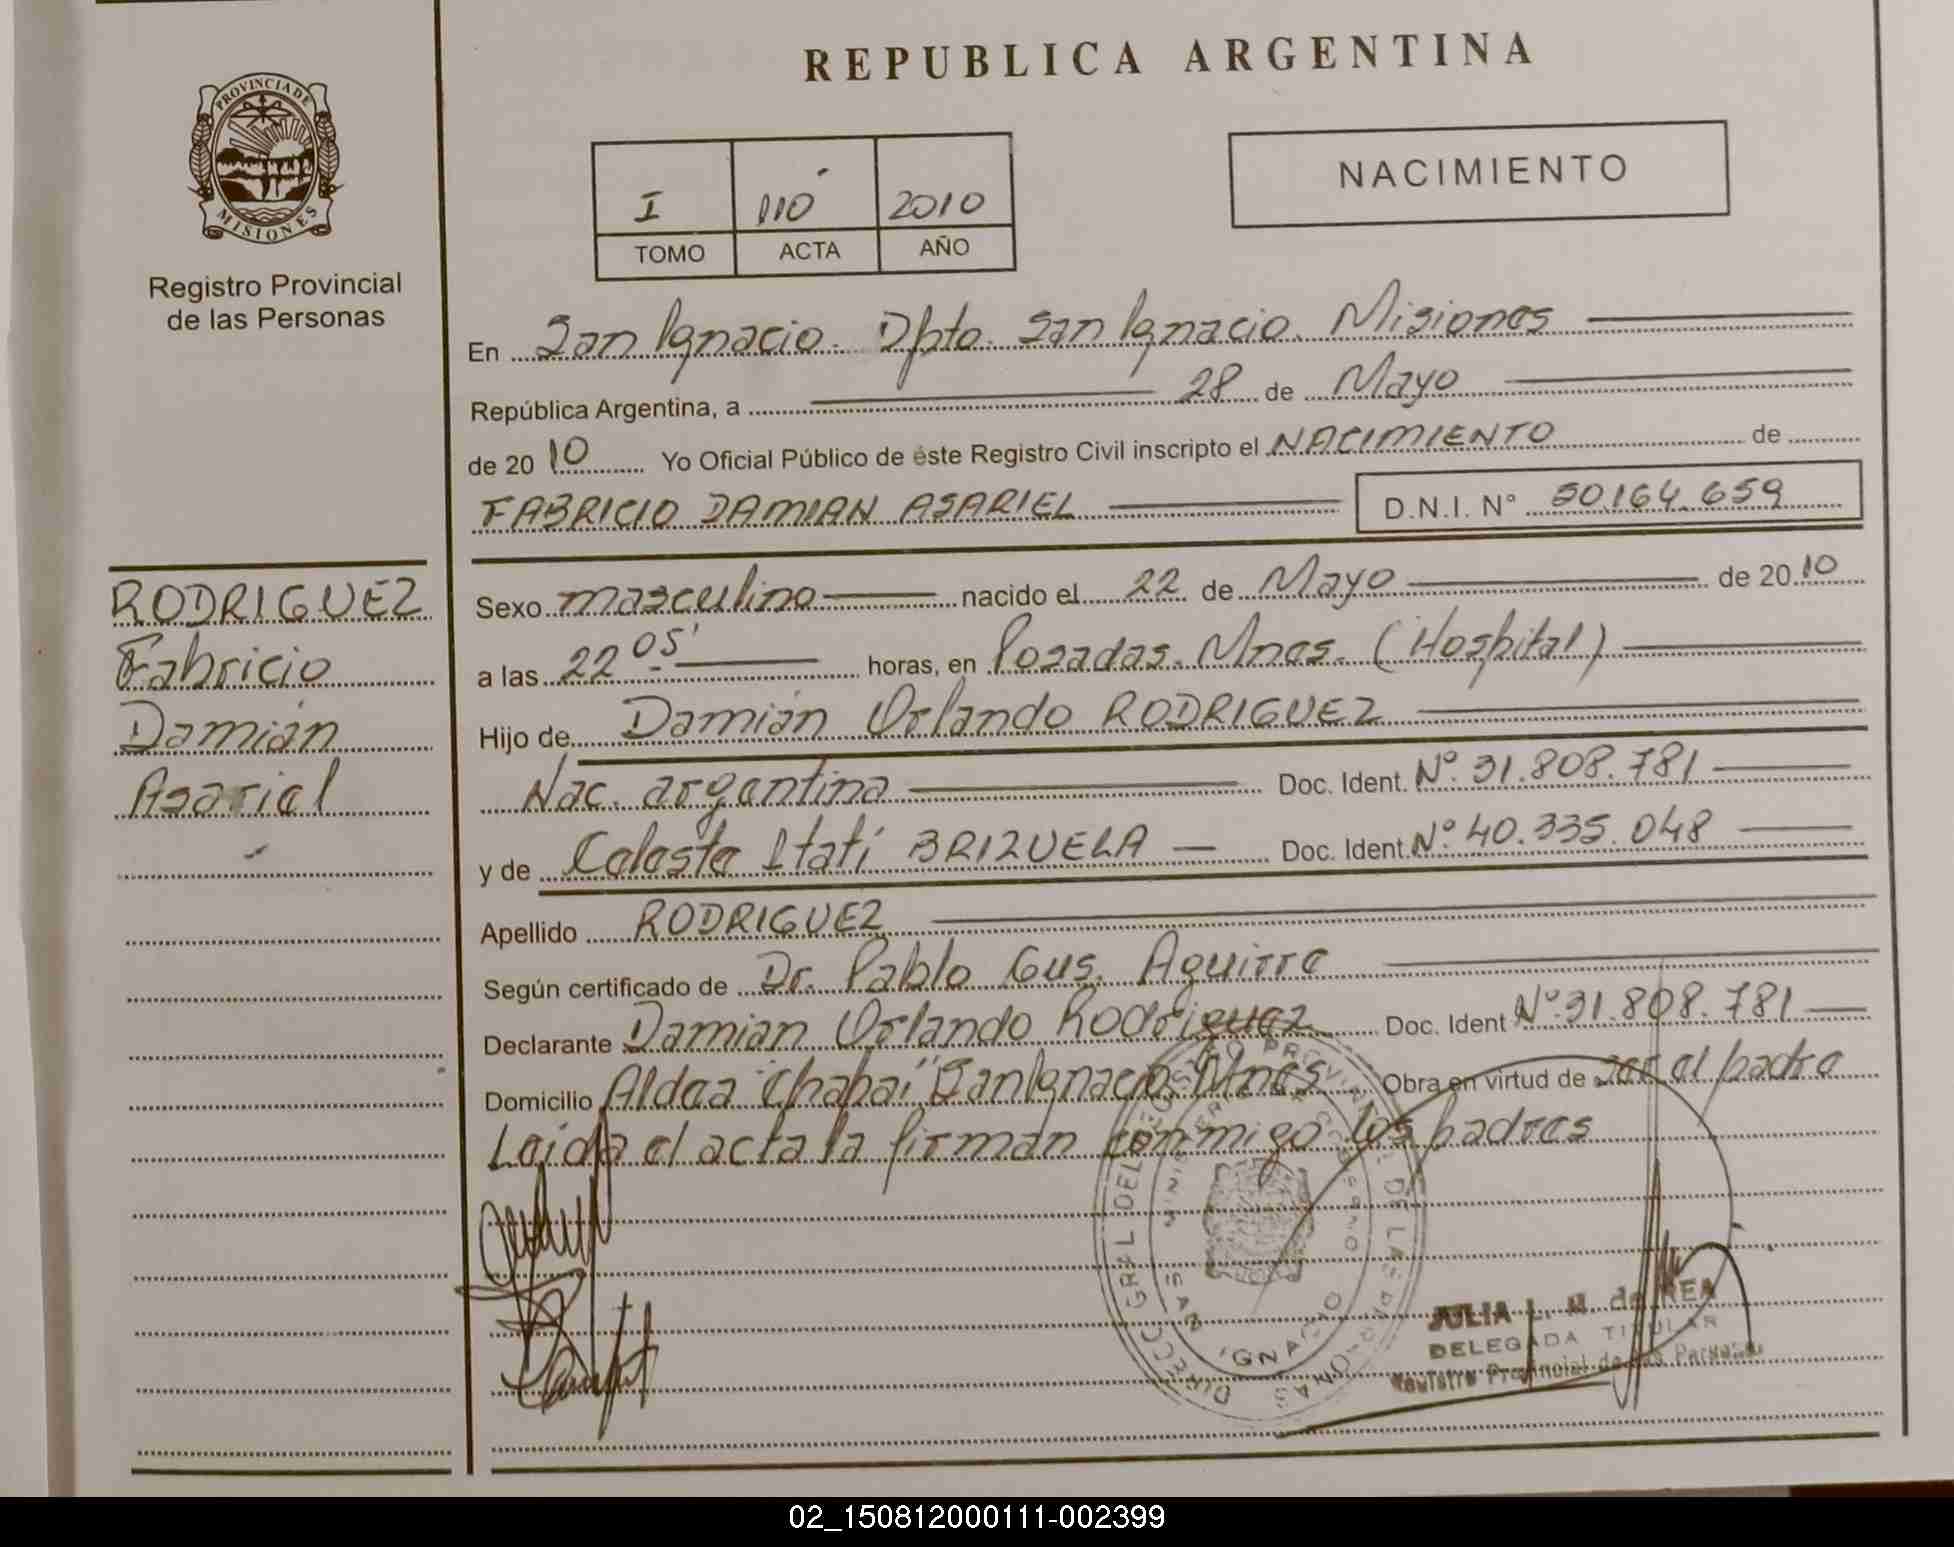 REPUBLICA ARGENTINA
PROVINCIA DE
MISIONES
Registro Provincial
de las Personas
I 110 2010
TOMO ACTA AÑO
NACIMIENTO
En San Ignacio. Dpto. San Ignacio. Misiones
República Argentina, a 28 de Mayo
de 20 10 Yo Oficial Público de éste Registro Civil inscripto el NACIMIENTO de
FABRICIO DAMIAN ASARIEL D.N.I. N° 50.164.659
RODRIGUEZ
Fabricio
Damián
Asariel
Sexo masculino nacido el 22 de Mayo de 20 10
a las 22 05' horas, en Posadas. Mnes. (Hospital)
Hijo de Damián Orlando RODRIGUEZ
Nac. argentina Doc. Ident. N° 31.808.781
y de Celeste Itatí BRIZUELA Doc. Ident. N° 40.335.048
Apellido RODRIGUEZ
Según certificado de Dr. Pablo Gus. Aguirre
Declarante Damian Orlando Rodriguez Doc. Ident N° 31.808.781
Domicilio Aldea "Chapai" San Ignacio Mnes Obra en virtud de ser el padre
Leida el acta la firman conmigo los padres
DIRECC GRAL DEL REGISTRO PROVINCIAL DE LAS PERSONAS
SAN IGNACIO
JULIA L. M. de REA
DELEGADA TITULAR
Registro Provincial de las Personas
02_150812000111-002399